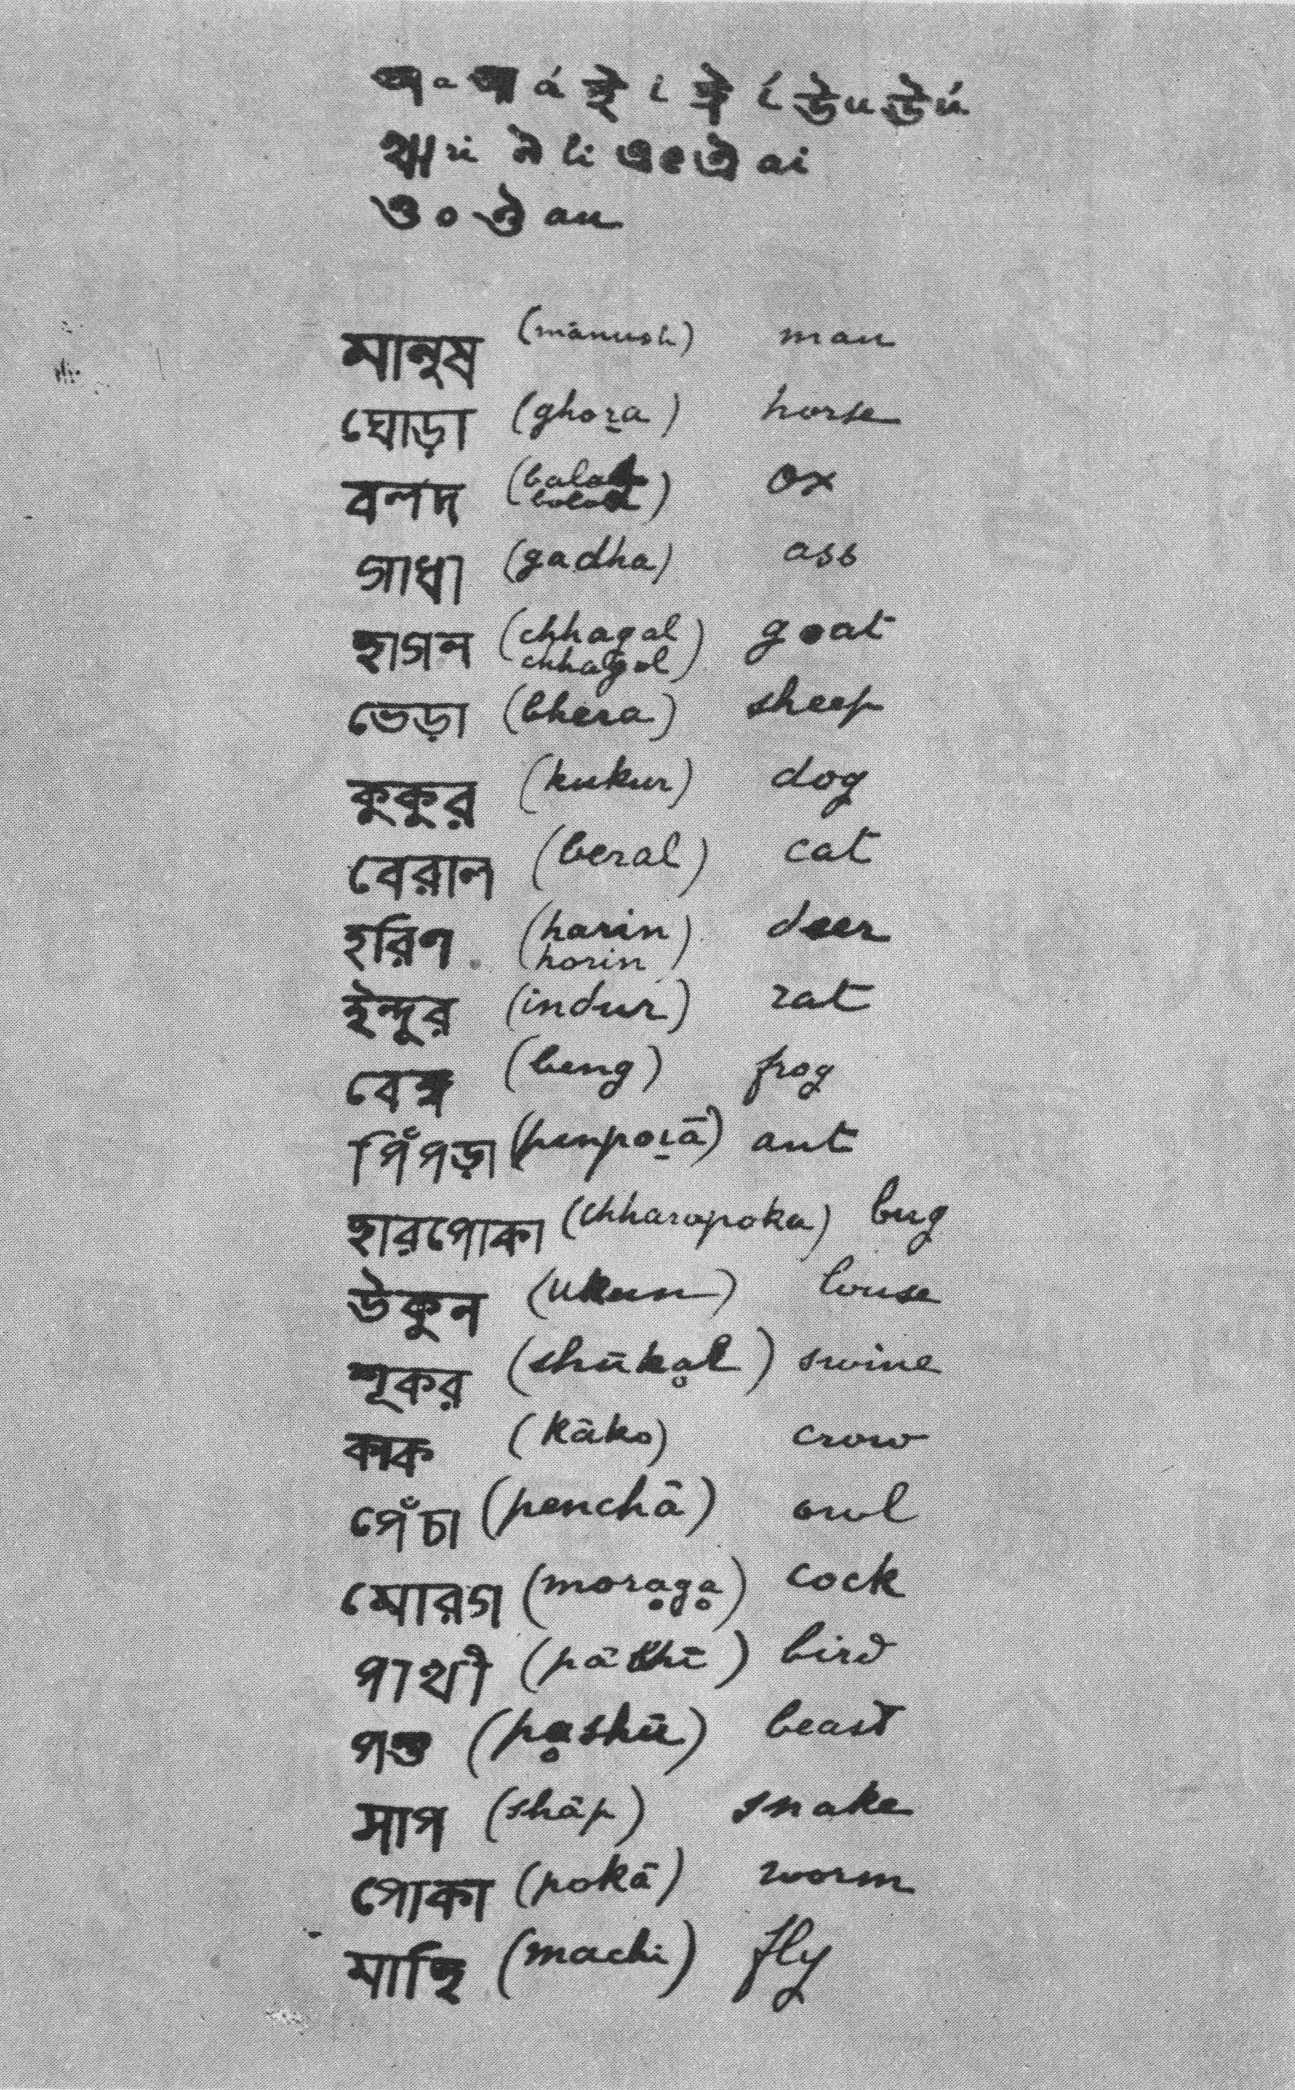 অ a আ á ই i ঈ í উ u ঊ ú
ঋ ri ঌ li এ e ঐ ai
ও o ঔ au
মানুষ (mānush) man
ঘোড়া (ghora) horse
বলদ (balad bolod) ox
গাধা (gadha) ass
ছাগল (chhagal chhagol) goat
ভেড়া (bhera) sheep
কুকুর (kukur) dog
বেরাল (beral) cat
হরিণ (harin horin) deer
ইন্দুর (indur) rat
বেঙ্গ (beng) frog
পিঁপড়া (pinporā) ant
ছারপোকা (chharopoka) bug
উকুন (ukun) louse
শূকর (shūkal) swine
কাক (kāko) crow
পেঁচা (penchā) owl
মোরগ (moraga) cock
পাখী (pākhī) bird
পশু (pashū) beast
সাপ (shāp) snake
পোকা (pokā) worm
মাছি (machi) fly